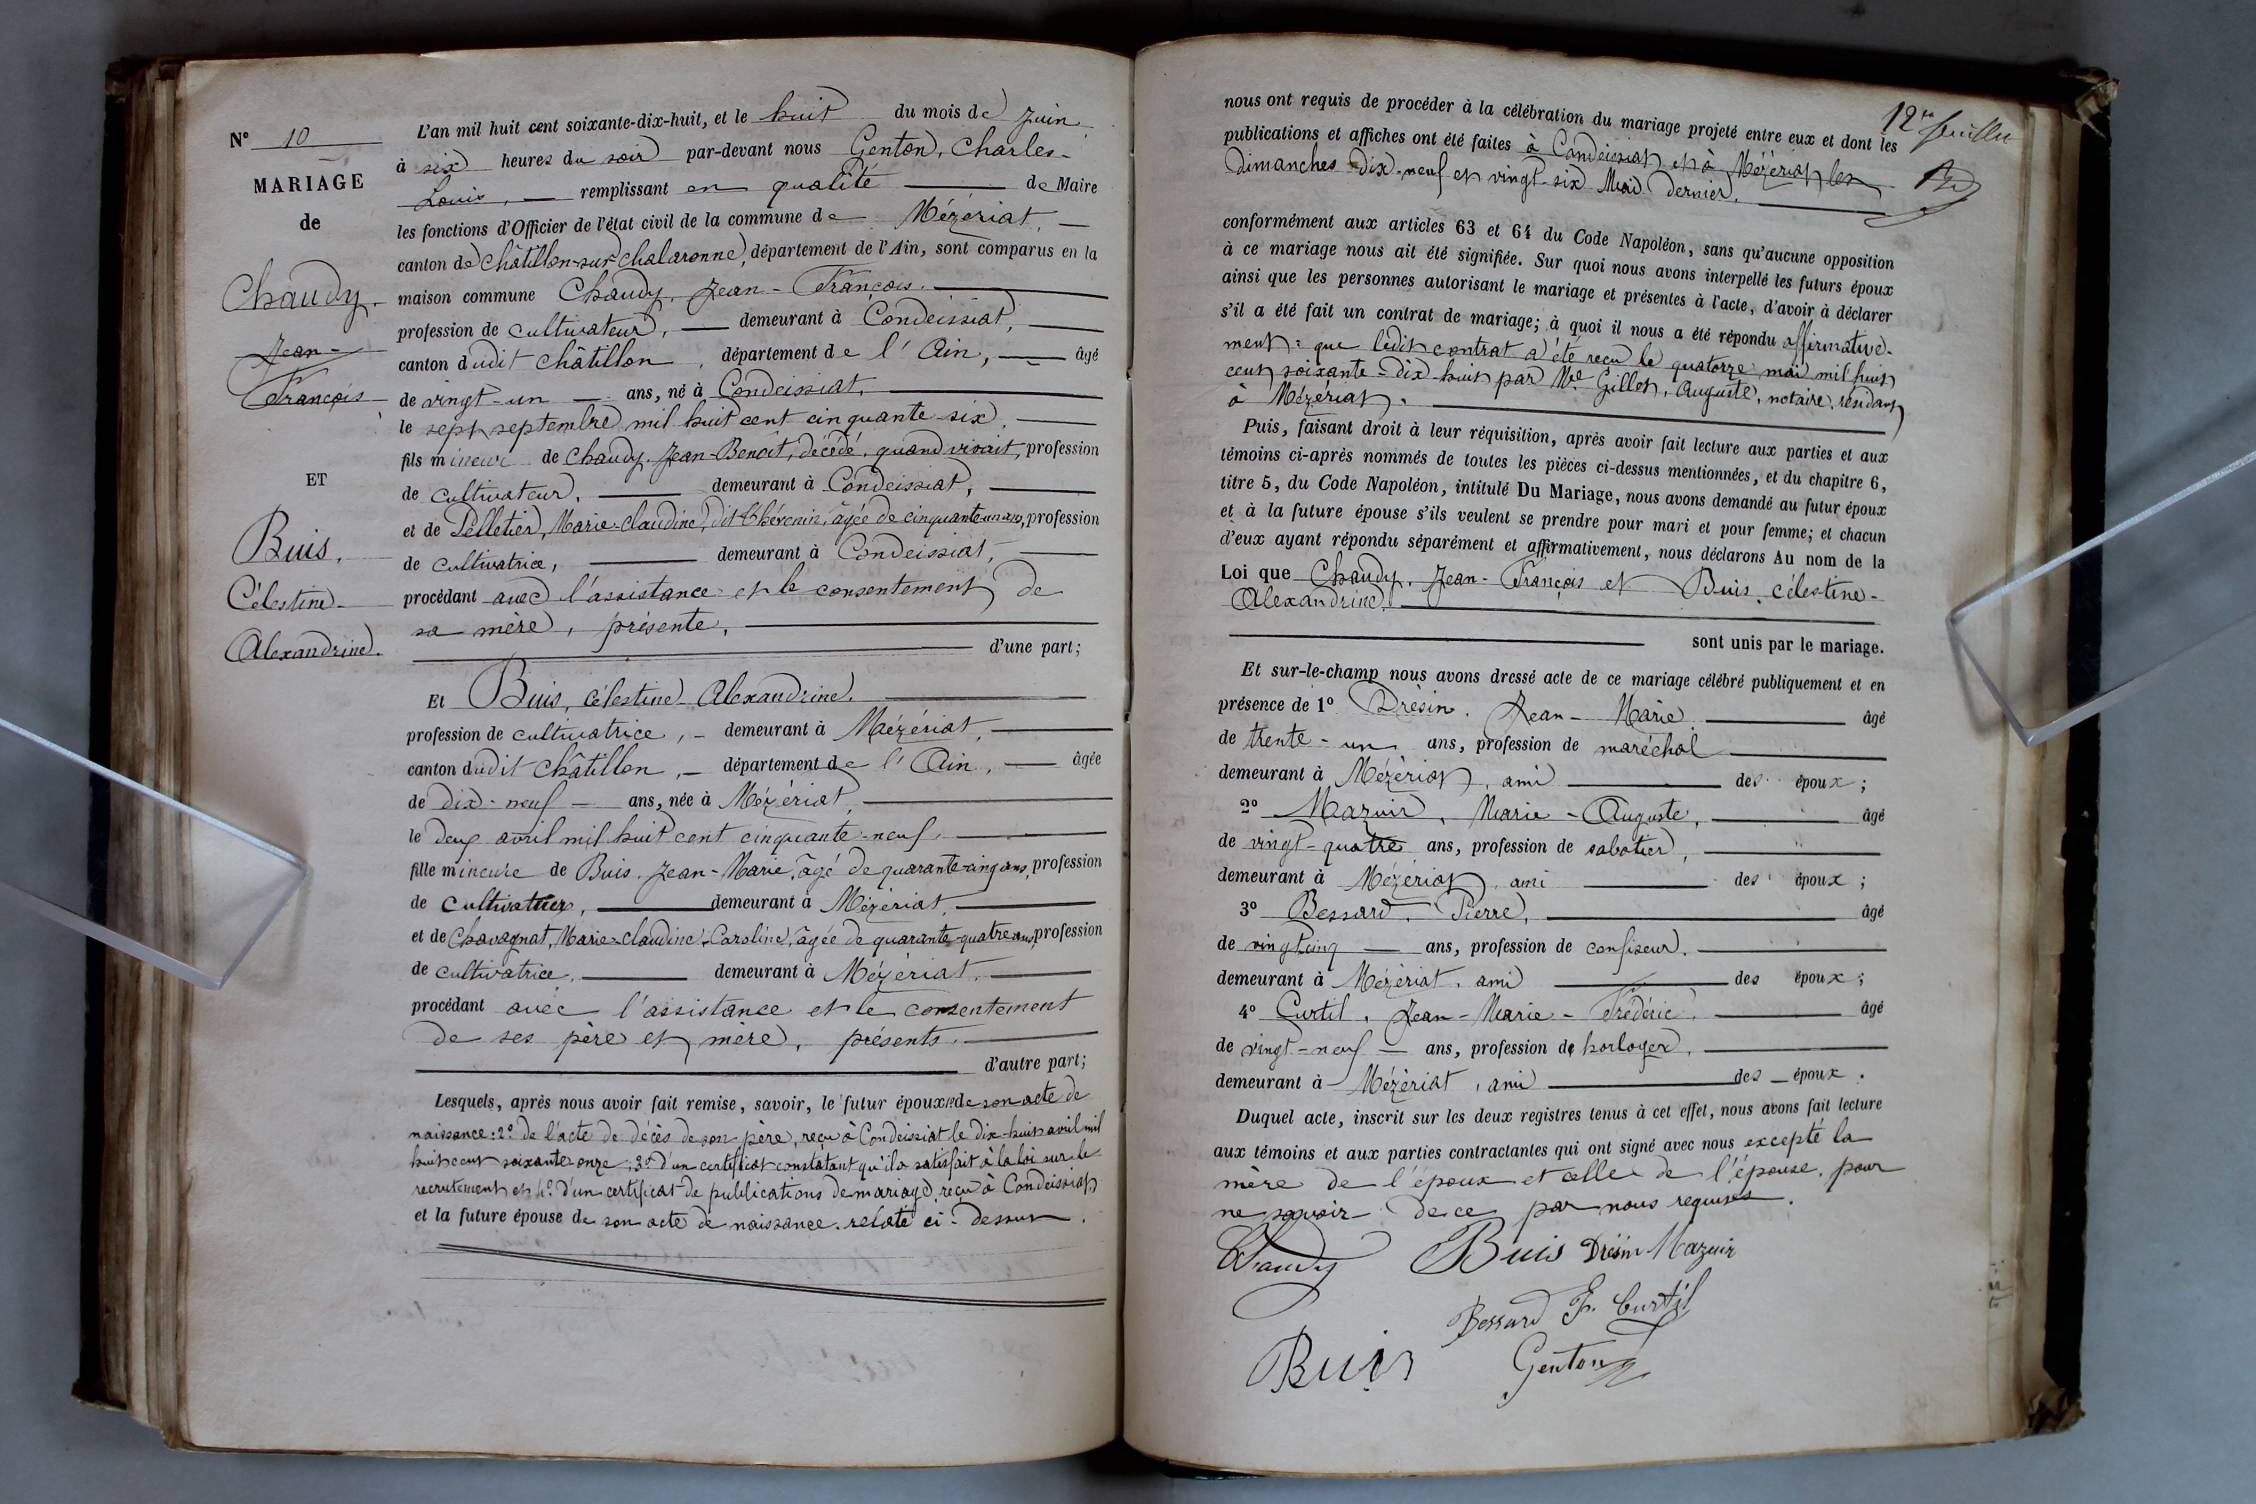 N° 10
MARIAGE
de
Chaudy,
Jean-
François
ET
Buis,
Célestine-
Alexandrine.
L'an mil huit cent soixante-dix-huit, et le huit du mois de Juin,
à six heures du soir par-devant nous Genton, Charles-
Louis, — remplissant en qualité — de Maire
les fonctions d'Officier de l'état civil de la commune de Mézériat, —
canton de Châtillon-sur-Chalaronne, département de l'Ain, sont comparus en la
maison commune Chaudy, Jean-François. —
profession de cultivateur, — demeurant à Condeissiat, —
canton dudit Châtillon, département de l'Ain, — âgé
de vingt-un — ans, né à Condeissiat, —
le sept septembre mil huit cent cinquante-six, —
fils mineur de Chaudy, Jean-Benoit, décédé, quand vivait, profession
de cultivateur, — demeurant à Condeissiat, —
et de Pelletier, Marie-Claudine, dit Thévenin, âgée de cinquante-un ans, profession
de cultivatrice, — demeurant à Condeissiat, —
procédant avec l'assistance et le consentement de
sa mère, présente, —
d'une part;
Et Buis, Célestine-Alexandrine. —
profession de cultivatrice, — demeurant à Mézériat, —
canton dudit Châtillon, — département de l'Ain, — âgée
de dix-neuf — ans, née à Mézériat, —
le deux avril mil huit cent cinquante-neuf —
fille mineure de Buis, Jean-Marie, âgé de quarante-cinq ans, profession
de cultivateur, — demeurant à Mézériat, —
et de Chavagnat, Marie-Claudine-Caroline, âgée de quarante-quatre ans, profession
de cultivatrice, — demeurant à Mézériat, —
procédant avec l'assistance et le consentement
de ses père et mère, présents, —
d'autre part;
Lesquels, après nous avoir fait remise, savoir, le futur époux 1° de son acte de
naissance; 2° de l'acte de décès de son père, reçu à Condeissiat le dix-huit avril mil
huit cent soixante-onze; 3° d'un certificat constatant qu'il a satisfait à la loi sur le
recrutement et 4° d'un certificat de publications de mariage, reçu à Condeissiat
et la future épouse de son acte de naissance, relaté ci-dessus.
12me feuillet
nous ont requis de procéder à la célébration du mariage projeté entre eux et dont les
publications et affiches ont été faites à Condeissiat et à Mézériat les
dimanches dix-neuf et vingt-six Mai dernier, —
conformément aux articles 63 et 64 du Code Napoléon, sans qu'aucune opposition
à ce mariage nous ait été signifiée. Sur quoi nous avons interpellé les futurs époux
ainsi que les personnes autorisant le mariage et présentes à l'acte, d'avoir à déclarer
s'il a été fait un contrat de mariage; à quoi il nous a été répondu affirmative-
ment: que ledit contrat a été reçu le quatorze mai mil huit
cent soixante-dix-huit par Me Gillet, Auguste, notaire, résidant
à Mézériat. —
Puis, faisant droit à leur réquisition, après avoir fait lecture aux parties et aux
témoins ci-après nommés de toutes les pièces ci-dessus mentionnées, et du chapitre 6,
titre 5, du Code Napoléon, intitulé Du Mariage, nous avons demandé au futur époux
et à la future épouse s'ils veulent se prendre pour mari et pour femme; et chacun
d'eux ayant répondu séparément et affirmativement, nous déclarons Au nom de la
Loi que Chaudy, Jean-François et Buis, Célestine-
Alexandrine. —
sont unis par le mariage.
Et sur-le-champ nous avons dressé acte de ce mariage célébré publiquement et en
présence de 1° Drésin, Jean-Marie — âgé
de trente-un ans, profession de maréchal —
demeurant à Mézériat, ami — des époux;
2° Mazuir, Marie-Auguste, — âgé
de vingt-quatre ans, profession de sabotier, —
demeurant à Mézériat, ami — des époux;
3° Bessard, Pierre, — âgé
de vingt cinq — ans, profession de confiseur. —
demeurant à Mézériat, ami — des époux;
4° Curtil, Jean-Marie-Frédéric, — âgé
de vingt-neuf — ans, profession de horloger, —
demeurant à Mézériat, ami — des époux.
Duquel acte, inscrit sur les deux registres tenus à cet effet, nous avons fait lecture
aux témoins et aux parties contractantes qui ont signé avec nous excepté la
mère de l'époux et celle de l'épouse, pour
ne savoir de ce par nous requises.
Chaudy Buis Drésin Mazuir
Bessard F. Curtil
Buis Genton